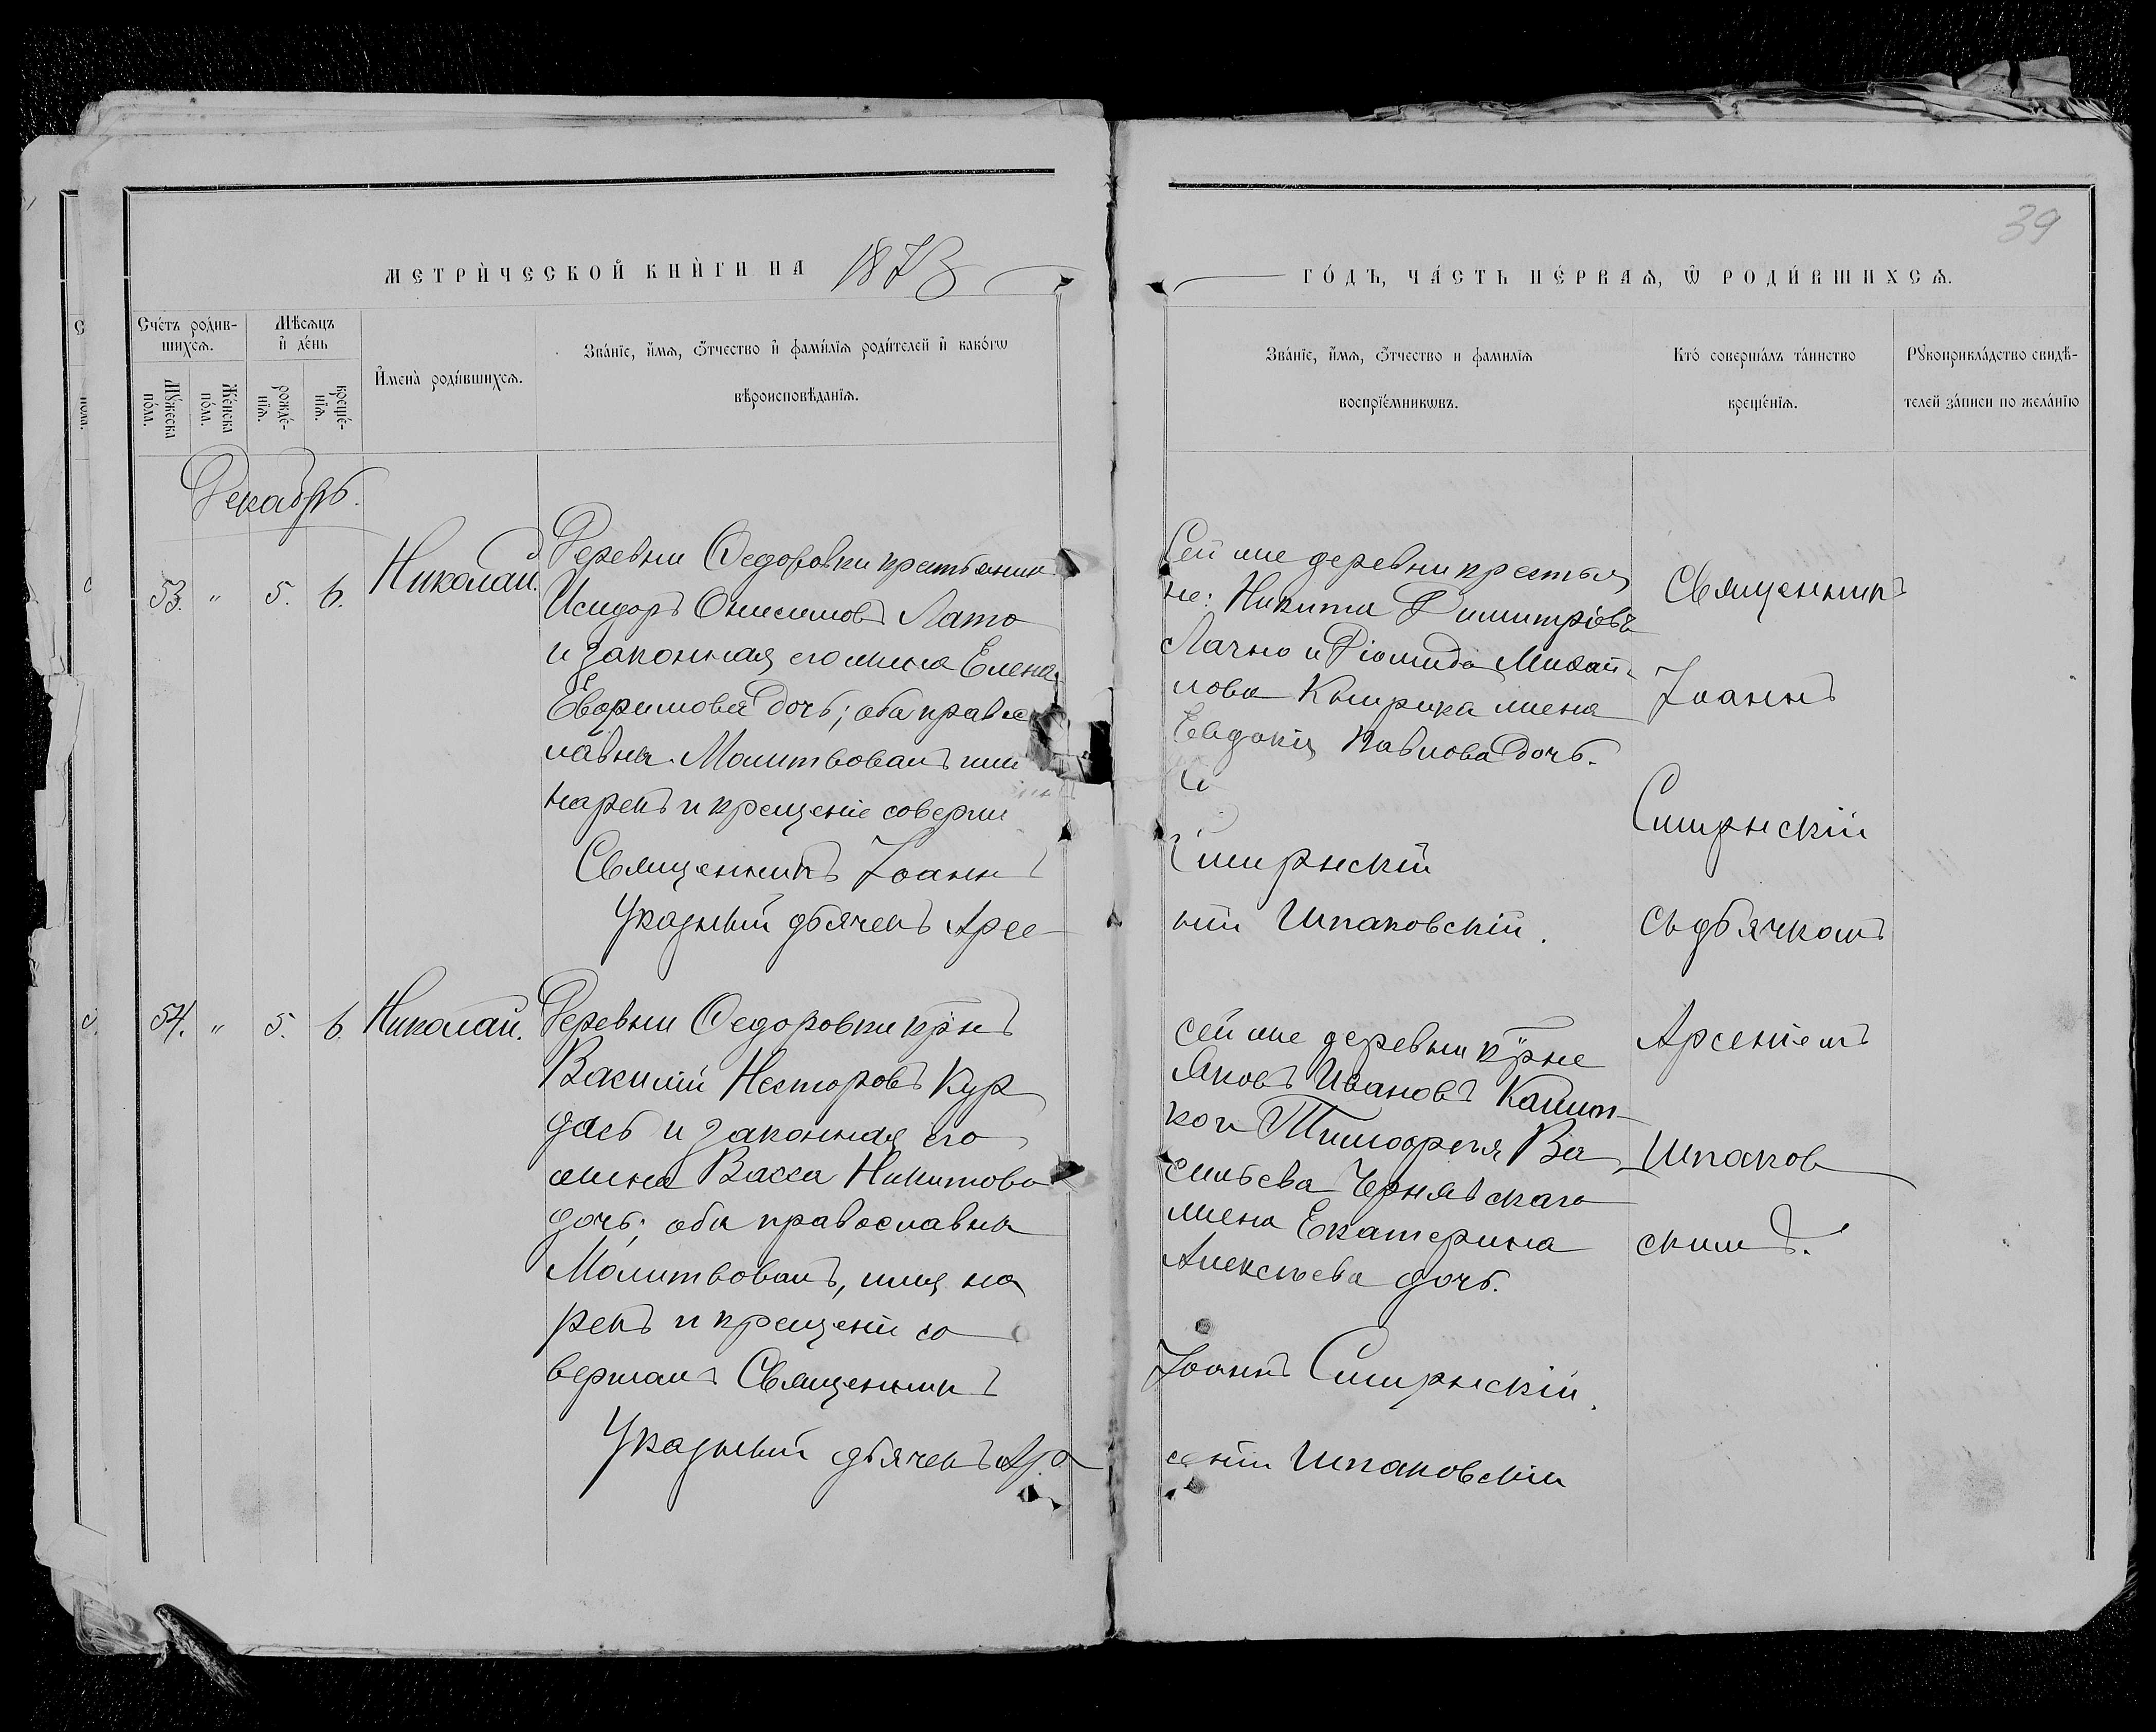 39
МЕТРИ́ЧЕСКОЙ КНИ́ГИ НА 1873
ГО́ДЪ, ЧА́СТЬ ПЕ́РВАЯ, Ѡ҆ РОДИ́ВШИХСѦ.
Сче́тъ роди́в-
шихсѧ.
Мѣ́сѧцъ
и҆ де́нь
Мꙋ́жеска
по́ла.
Же́нска
по́ла.
рожде́-
нїѧ.
креще́-
нїѧ.
И҆мена̀ роди́вшихсѧ.
Зва́нїе, и҆́мѧ, ѻ҆́тчество и҆ фами́лїѧ роди́телей и҆ како́гѡ
вѣроисповѣ́данїѧ.
Зва́нїе, и҆́мѧ, ѻ҆́тчество и фамилїѧ
воспрїе́мникѡвъ.
Кто̀ соверша́лъ та́инство
креще́нїѧ.
Рꙋкоприкла́дство свидѣ́-
телей за́писи по жела́нїю
Декабрь.
53. " 5. 6. Николай.
Деревни Ѳедоровки крестьянинъ
Исидоръ Онисимовъ Лата
и законная его жена Елена
Евфимова дочь; оба правос
лавны. Молитвовалъ имя
нарекъ и крещеніе соверши
Священникъ Іоаннъ
Указный дьячекъ Арсе-
Сей же деревни крестья
не: Никита Димитріовъ
Лачно и Діомида Михай-
лова жена
Евдокія Павлова дочь.
Смирнскій
ній Шпаковскій.
Священникъ
Іоаннъ
Смирнскій
съ дьячкомъ
Арсеніемъ
Шпаков
скимъ.
54. " 5. 6. Николай.
Деревни Ѳедоровки крнъ
Василій Несторовъ Кур
дасъ и законная его
жена Васса Никитова
дочь; оба православны
Молитвовалъ, имя на
рекъ и крещеніе со
вершалъ Священникъ
Указный дьячекъ Ар
сей же деревни крне
Яковъ Ивановъ
ко и Тимофея Ва
сильева Чернявскаго
жена Екатерина
Алексѣева дочь.
Іоаннъ Смирнскій.
сеній Шпаковскій